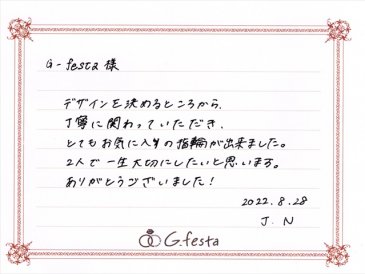 G-festa 様
デザインを決めるところから、
丁寧に関わっていただき、
とてもお気に入りの指輪が出来ました。
2人で一生大切にしたいと思います。
ありがとうございました！
2022.8.28
J.N
G.festa